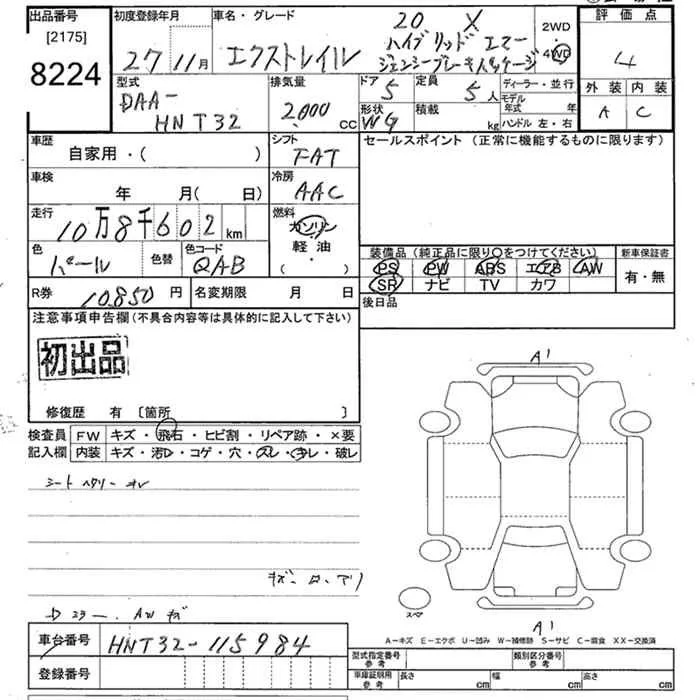 出品番号
[2175]
8224
初度登録年月
27 11月
車名・グレード
エクストレイル
20 X
ハイブリッド エマー
ジェンシーブレーキパッケージ
2WD
・
4WD
評価点
4
外装 内装
A C
型式
DAA-
HNT32
排気量
2,000 cc
ドア 5
定員 5人
形状 WG
積載 kg
ディーラー・並行
モデル年式 年
ハンドル 左・右
車歴
自家用・( )
シフト
FAT
車検
年 月(日)
冷房
AAC
走行
10万8千602km
燃料
ガソリン
軽油・
( )
色
パール
色替
色コード
QAB
R券 10,850円
名変期限 月 日
セールスポイント (正常に機能するものに限ります)
装備品 (純正品に限り○をつけてください)
PS PW ABS エアB AW
SR ナビ TV カワ
新車保証書
有・無
後日品
注意事項申告欄(不具合内容等は具体的に記入して下さい)
初出品
修復歴 有 〔箇所 〕
検査員
記入欄
FW キズ・飛石・ヒビ割・リペア跡・×要
内装 キズ・汚レ・コゲ・穴・スレ・キレ・破レ
シートヘタリ
A1
スペ
A1
A−キズ E−エクボ U−凹み W−補修跡 S−サビ C−腐食 XX−交換済
車台番号 HNT32-115984
登録番号
型式指定番号
参考
類別区分番号
参考
車庫証明用
参考
長さ cm 幅 cm 高さ cm